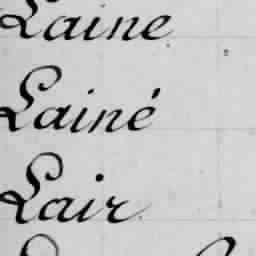 Laine
Lainé
Lair